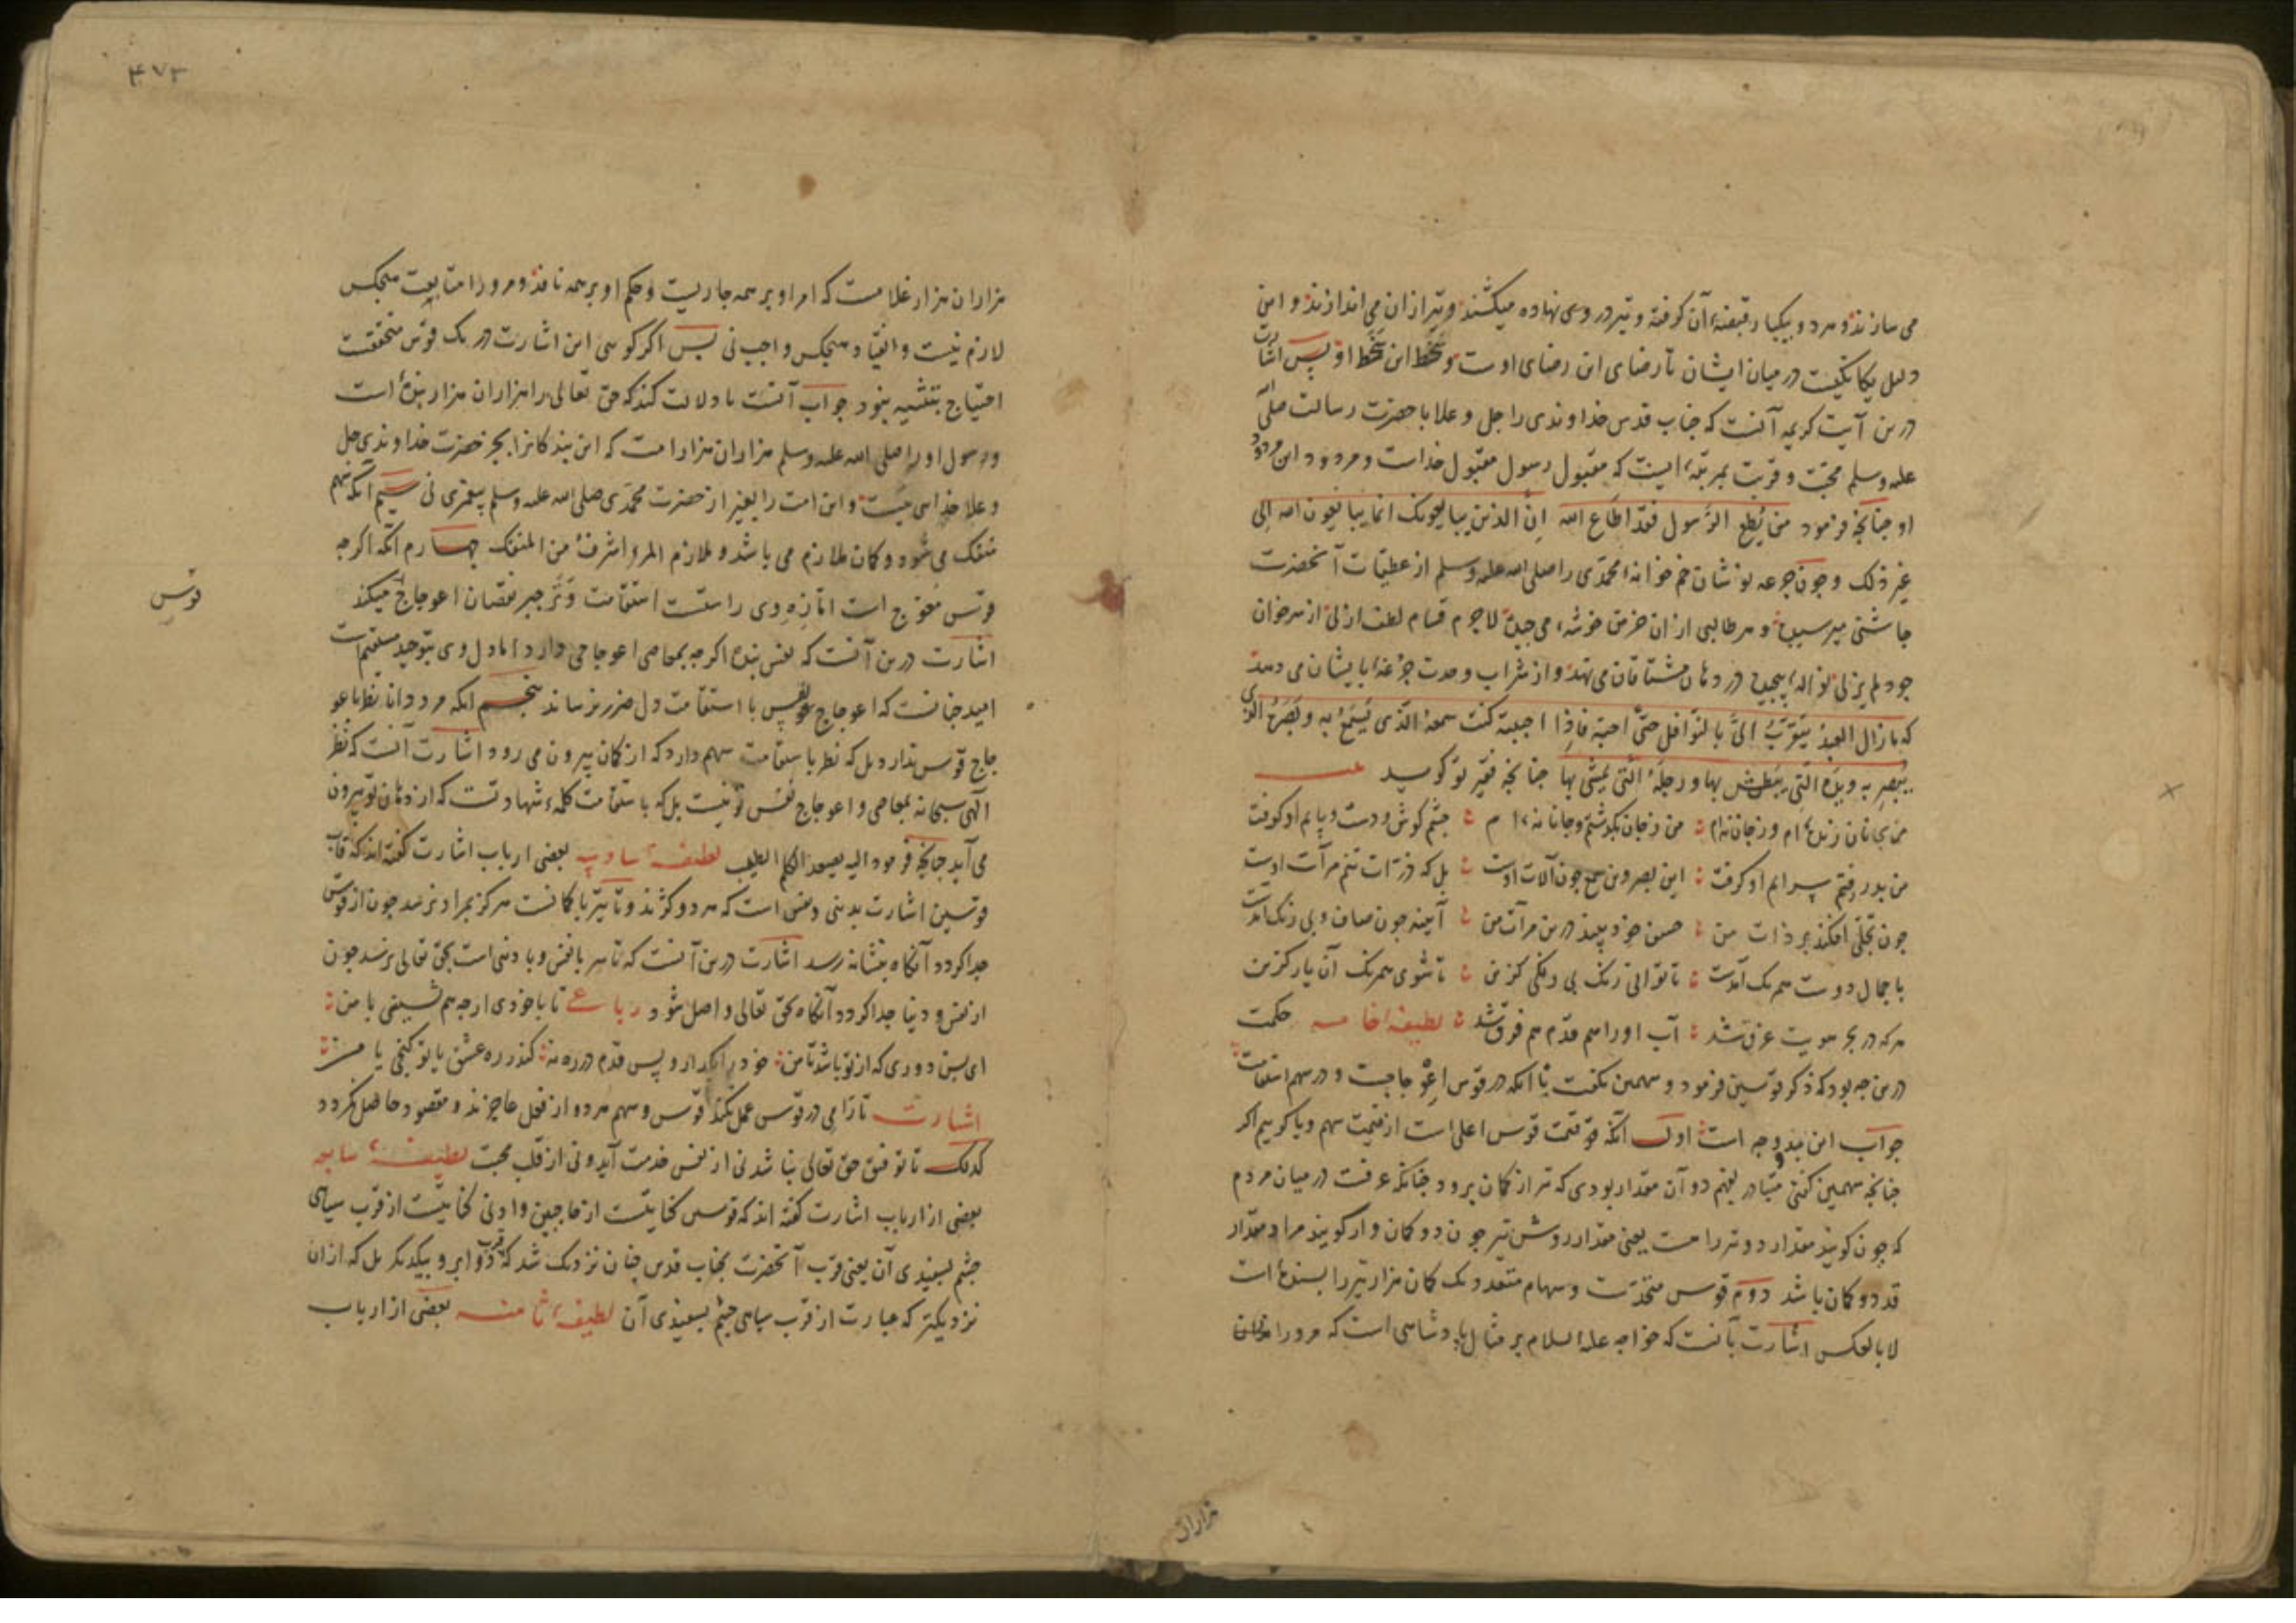 می سازند و هر دو بیکبار قبضهٔ آن گرفته و تیر در وی نهاده میکشند و تیر ازان می اندازند و این
دلیل یکانکیست در میان ایشان تا رضای این رضای اوست و سخط این سخط او پس اشارت
درین آیت کریمه آنست که جناب قدس خداوندی را جل و علا با حضرت رسالت صلی الله
علیه وسلم محبت و قربت بمرتبهٔ ایست که مقبول رسول مقبول خداست و مردود این مردود
او چنانچه فرمود من یطع الرسول فقد اطاع الله ان الذین یبایعونک انما یبایعون الله الی
غیر ذلک و چون جرعه نوشان خم خانهٔ محمدی را صلی الله علیه وسلم از عطیات آنحضرت
چاشنی میرسید و هر طالبی ازان خرمن خوشهٔ می چید لاجرم قسام لطف ازلی از سر خوان
جود لم یزلی نوالهٔ پیچید در دهان مشتاقان می نهد و از شراب وحدت جرعهٔ بایشان می دهد
که ما زال العبد یتقرب الی بالنوافل حتی احبه فاذا احببته کنت سمعه الذی یسمع به و بصره الذی
یبصر به ویده التی یبطش بها و رجله التی یمشی بها چنانچه فقیر تو کوید
من بجانان زنده ام و ز جان نه ام من ز جان بگذشتم و جانانه ام چشم و کوش و دست و پایم او کرفت
من بدر رفتم سرایم او کرفت این بصر وین سمع چون آلات اوست بل که ذرات تنم مرآت اوست
چون تجلی افکند بر ذات من حسن خود بیند درین مرآت من آیینه چون صاف و بی رنک آمدست
با جمال دوست همرنک آمدست تا توانی رنک بی رنکی کزین تا شوی همرنک آن یار کزین
هر که در بحر هویت غرق شد آب او را هم قدم هم فرق شد لطیفهٔ خامسه حکمت
درین چه بود که ذکر قوسین فرمود و سهمین نکفت با آنکه در قوس اعوجاجیست و در سهم استقامت
جواب این بدو وجه است اول آنکه قیمت قوس اعلی است از قیمت سهم و یا کوییم اکر
چنانچه سهمین کفتی متبادر بفهم دو آن مقدار بودی که تیر از کمان برود چنانکه عرفست در میان مردم
که چون کویند مقدار دو تیر راهست یعنی مقدار روش تیر چون دو کمان وار کویند مراد مقدار
قد دو کمان باشد دوم قوس متحدست و سهام متعدد یک کمان هزار تیر را بسنده است
لا بالعکس اشارت بآنست که خواجه علیه السلام بر مثال پادشاهی است که مر ورا هزاران
هزاران
۴۷۳
هزاران هزار غلامست که امر او بر همه جاریست و حکم او بر همه نافذ و مر ورا متابعت هیچکس
لازم نیست و انقیاد هیچکس واجب نی پس اکر کویی این اشارت در یک قوس متحققست
احتیاج بتثنیه نبود جواب آنست تا دلالت کند که حق تعالی را هزاران هزار بنده است
و رسول او را صلی الله علیه وسلم هزاران هزار امت که این بندکانرا بجز حضرت خداوندی جل
و علا خدایی نیست و این امت را بغیر از حضرت محمدی صلی الله علیه وسلم پیغمبری نی سیم آنکه سهم
منفک می شود و کمان ملازم می باشد و ملازم المرء اشرف من المنفک چهارم آنکه اکرچه
قوس معوج است اما زه وی راستست استقامت وتر جبر نقصان اعوجاج میکند
قوس
اشارت درین آنست که نفس بنده اکرچه بمعاصی اعوجاجی دارد اما دل وی بتوحید مستقیم است
امید چنانست که اعوجاج نفس با استقامت دل ضرر نرساند پنجم آنکه مرد دانا نظر باعو
جاج قوس ندارد بل که نظر باستقامت سهم دارد که از کمان بیرون می رود اشارت آنست که نظر
الهی سبحانه بمعاصی و اعوجاج نفس تو نیست بل که باستقامت کلمهٔ شهادتست که از دهان تو بیرون
می آید چنانچه فرمود الیه یصعد الکلم الطیب لطیفهٔ سادسه بعضی ارباب اشارت کفته اند که قاب
قوسین اشارت بدنیی و نفس است که هر دو کژند و تا تیر با کمانست هرکز بمراد نرسد چون از قوس
جدا کردد آنکاه بنشانه رسد اشارت درین آنست که تا سر با نفس و با دنیی است بحق تعالی نرسد چون
از نفس و دنیا جدا کردد آنکاه بحق تعالی واصل شود رباعی تا با خودی ارچه هم نشینی با من
ای بس دوری که از تو باشد تا من خود را بگذار و پس قدم در ره نه کندر ره عشق یا تو کنجی یا من
اشارت تا رامی در قوس عمل نکند قوس و سهم هر دو از فعل عاجزند و مقصود حاصل نکردد
کذلک تا توفیق حق تعالی نباشد نی از نفس خدمت آید و نی از قلب محبت لطیفهٔ سابعه
بعضی از ارباب اشارت کفته اند که قوسین کنایتست از حاجبین و ادنی کنایتست از قرب سیاهی
چشم بسفیدی آن یعنی قرب آنحضرت بجناب قدس چنان نزدیک شد که قرب دو ابرو بیکدیکر بل که ازان
نزدیکتر که عبارت از قرب سیاهی چشم بسفیدی آن لطیفهٔ ثامنه بعضی از ارباب